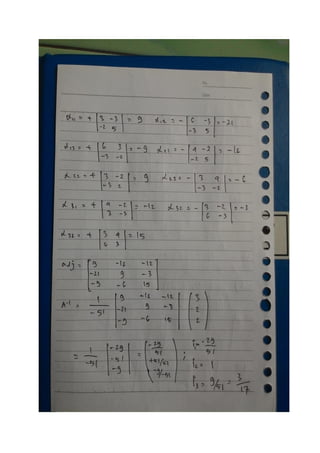 α₁₁ = + |3 -3; -2 5| = 9 α₁₂ = - |6 -3; -3 5| = -21
α₁₃ = + |6 3; -3 -2| = -9 α₂₁ = - |4 -2; -2 5| = -16
α₂₂ = + |3 -2; -3 5| = 9 α₂₃ = - |3 4; -3 -2| = -6
α₃₁ = + |4 -2; 3 -3| = -12 α₃₂ = - |3 -2; 6 -3| = -3
α₃₃ = + |3 4; 6 3| = 15
adj = [9 -16 -12; -21 9 -3; -9 -6 15]
A⁻¹ = 1/-51 [9 -16 -12; -21 9 -3; -9 -6 15] (3; 2; 2)
= 1/-51 [-29; -51; -9] = (-29/-51; -51/-51; -9/-51) ; i₁ = 29/51
i₂ = 1
i₃ = 9/51 = 3/17